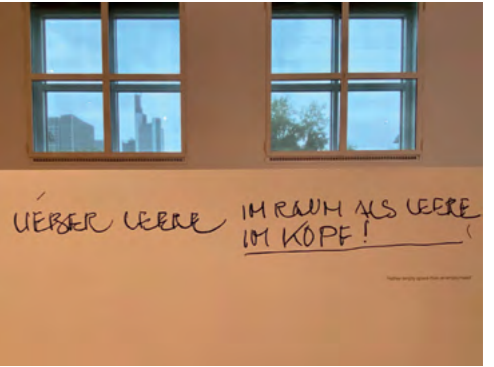 LIEBER LEERE IM RAUM ALS LEERE
IM KOPF!